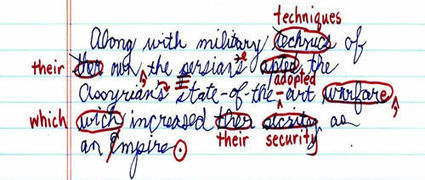 techniques
Along with military technics of
their ther own, the persian's apted the
adopted
Assyrian's state-of-the-art warfare,
which wich increased ther sicrity as
their security
an Empire.